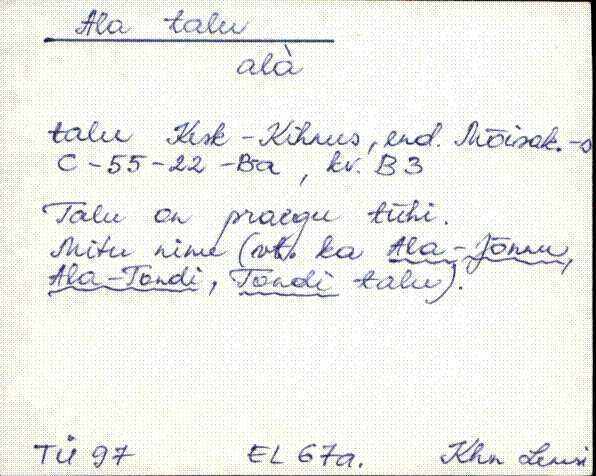 Ala talu
alà
talu Kesk-Kihnus, end. Mõisak.-s
C-55-22-B-a, kv. B3
Talu on praegu tühi.
Mitu nime (vt. ka Ala-Jõnnu,
Ala-Tondi, Tondi talu).
TÜ 97 EL 67a. Khn